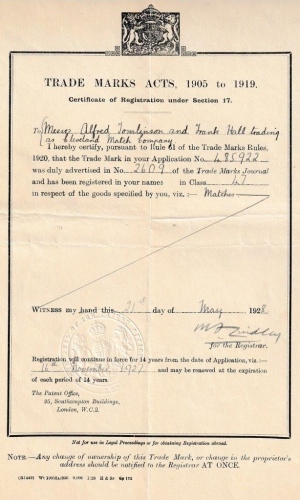 TRADE MARKS ACTS, 1905 to 1919.
Certificate of Registration under Section 17.
To Messrs Alfred Tomlinson and Frank Hall trading
as Cleveland Match Company
I hereby certify, pursuant to Rule 61 of the Trade Marks Rules,
1920, that the Trade Mark in your Application No. 485922
was duly advertised in No. 2609 of the Trade Marks Journal
and has been registered in your names in Class 47
in respect of the goods specified by you, viz.:— Matches
WITNESS my hand this 21st day of May 1928
for the Registrar.
Registration will continue in force for 14 years from the date of Application, viz.:—
16th November 1927 and may be renewed at the expiration
of each period of 14 years.
The Patent Office,
25, Southampton Buildings,
London, W.C.2.
Not for use in Legal Proceedings or for obtaining Registration abroad.
NOTE.—Any change of ownership of this Trade Mark, or change in the proprietor's
address should be notified to the Registrar AT ONCE.